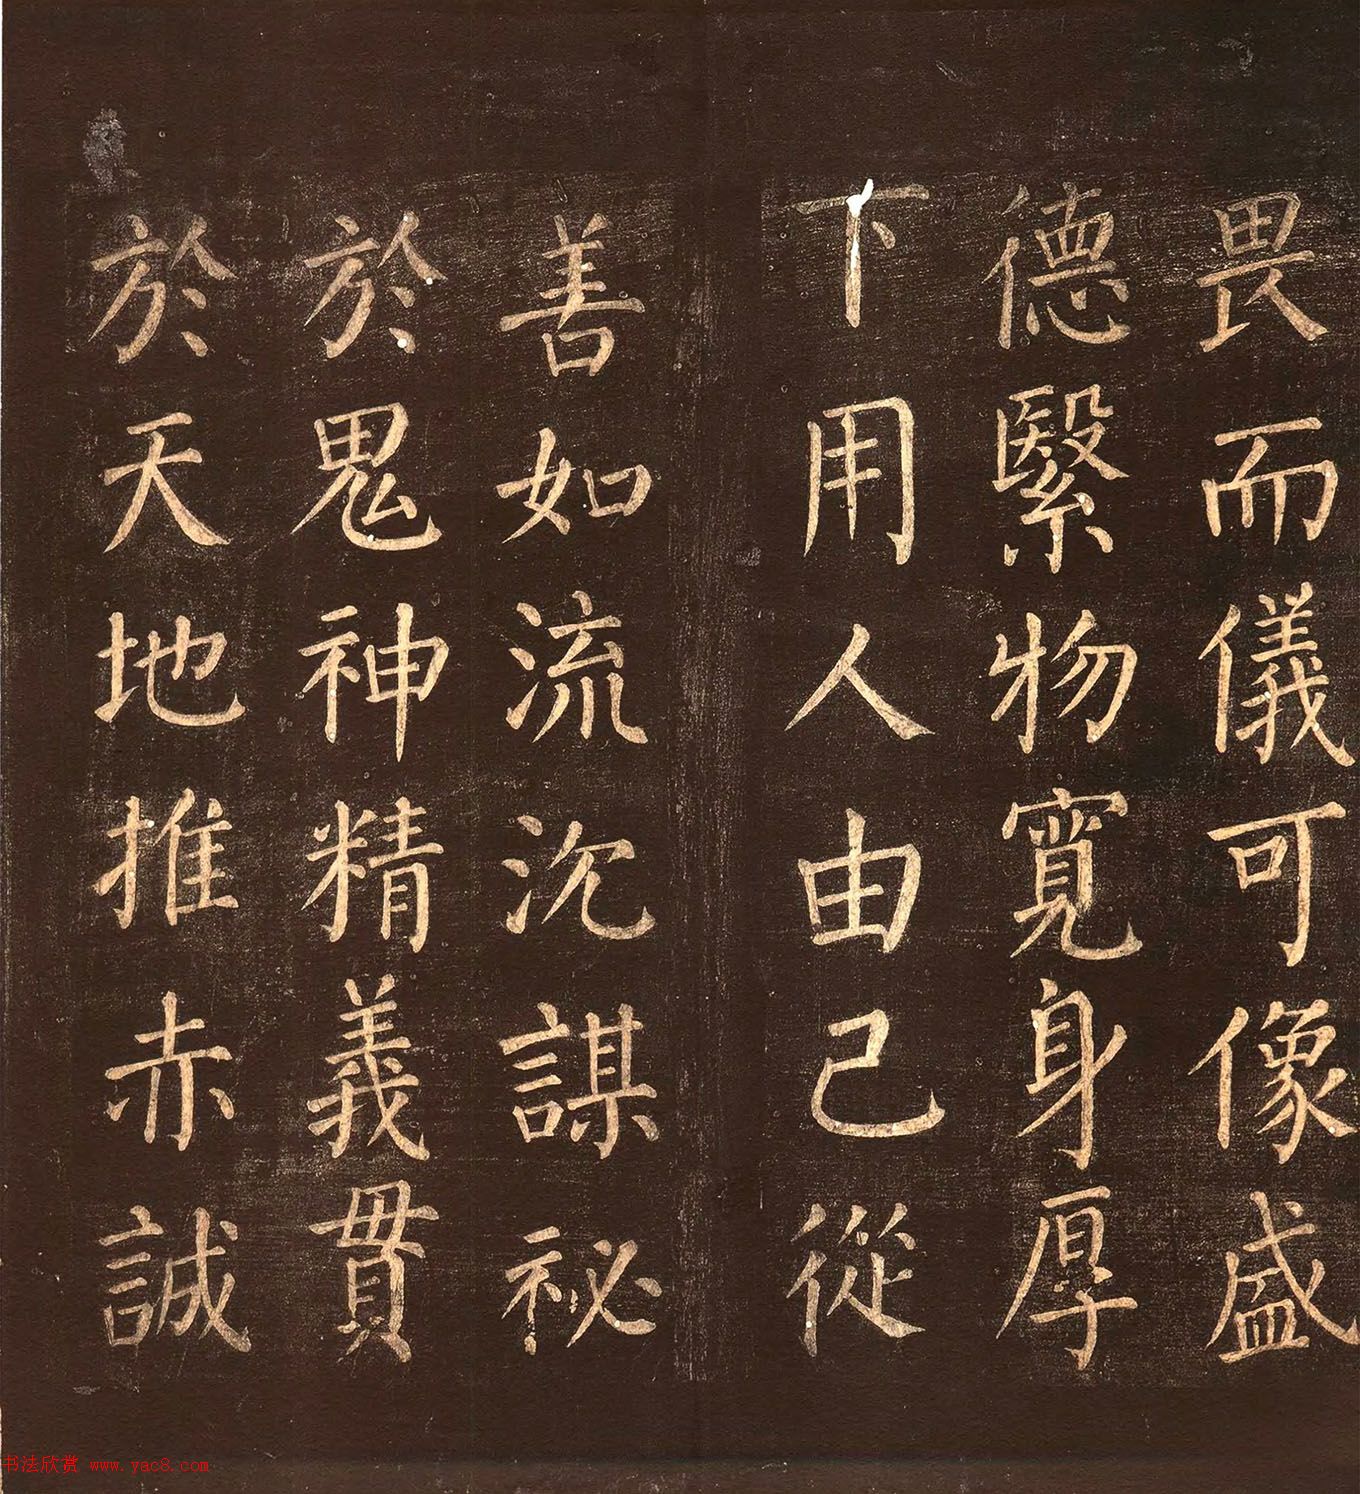 畏而儀可像盛
德繄物寬身厚
下用人由己從
善如流沉謀祕
於鬼神精義貫
於天地推赤誠
书法欣赏 www.yac8.com